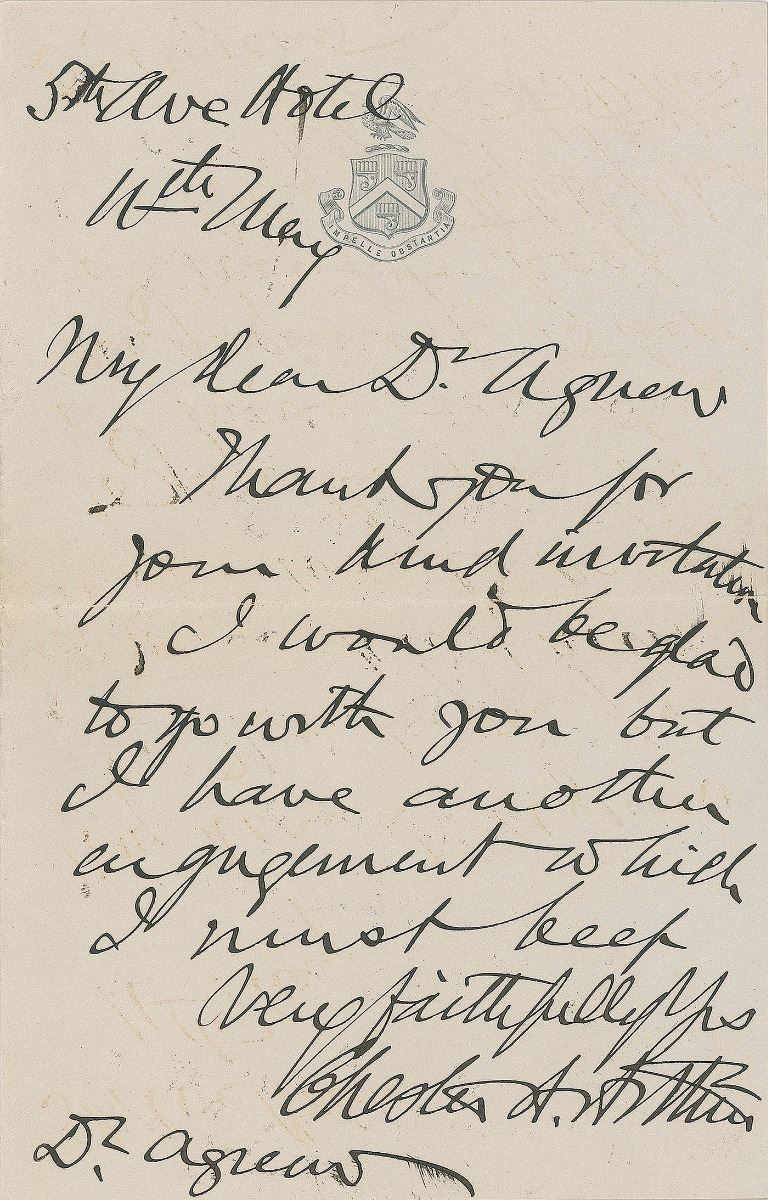 5th Ave Hotel
11th May
IMPELLE OBSTANTIA
My dear Dr. Agnew
Thank you for
your kind invitation
, I would be glad
to go with you but
I have another
engagement which
I must keep
Very faithfully Yrs
Chester A. Arthur
Dr. Agnew